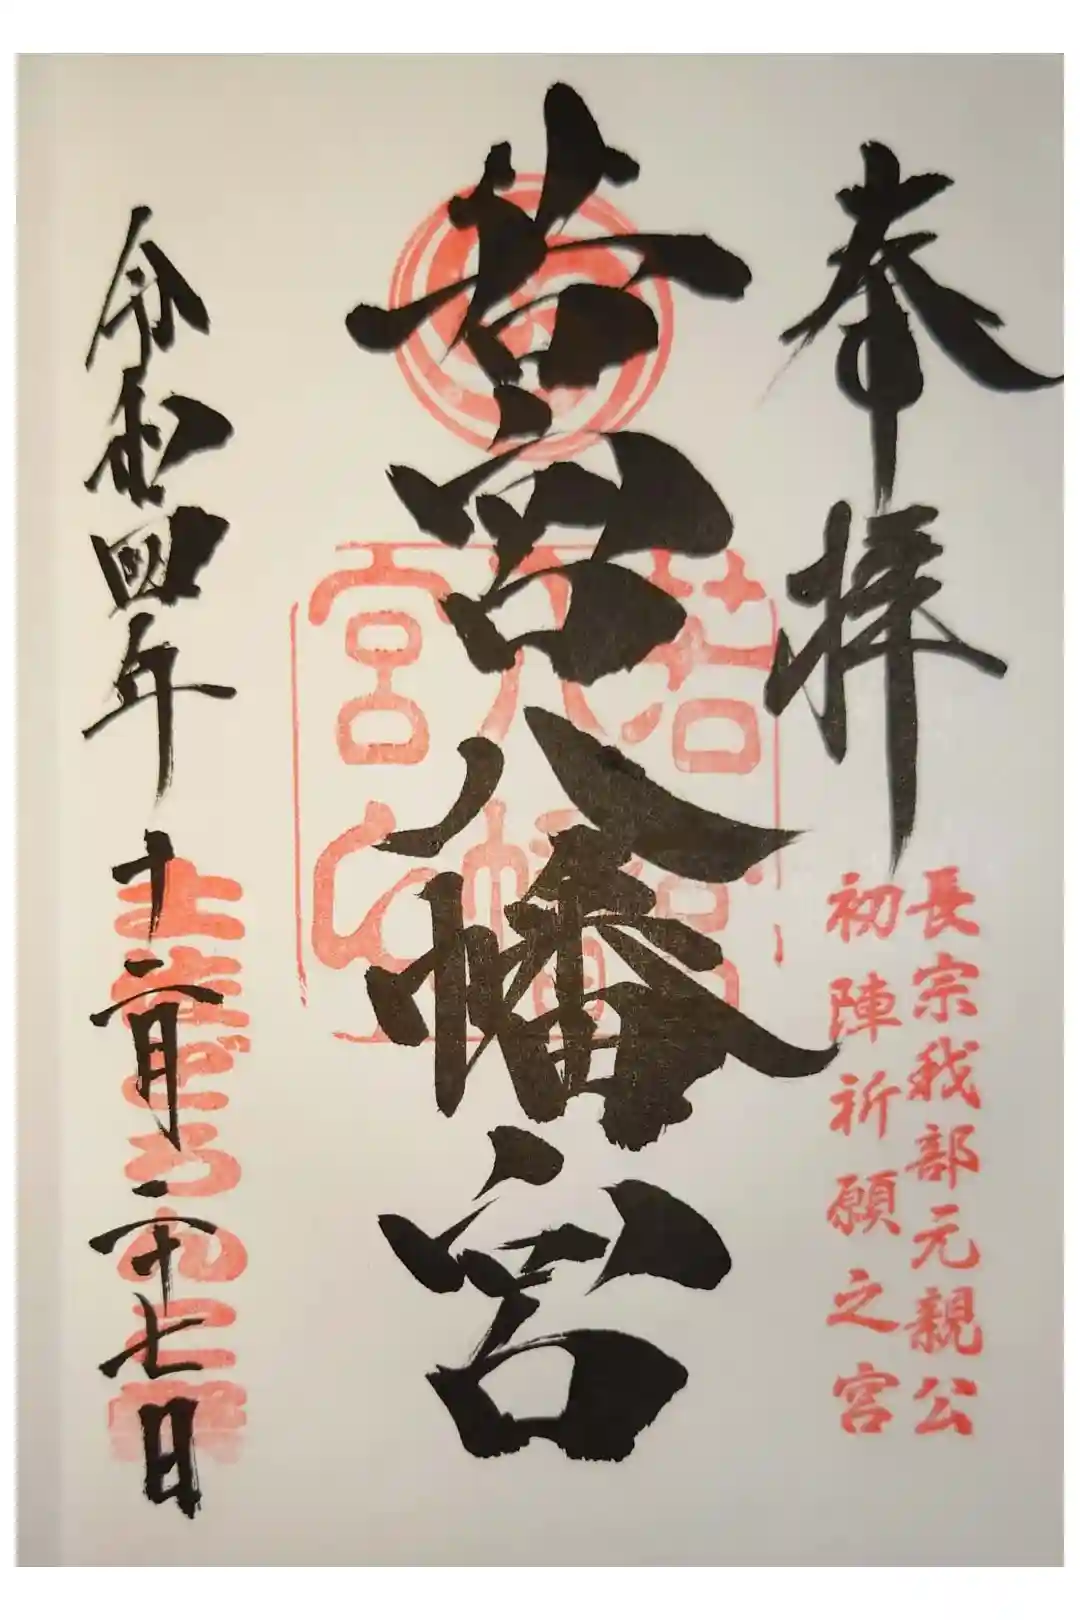 奉拝
長宗我部元親公
初陣祈願之宮
若宮八幡宮
若宮
八幡宮
令和四年十二月二十七日
土佐どろんこ祭